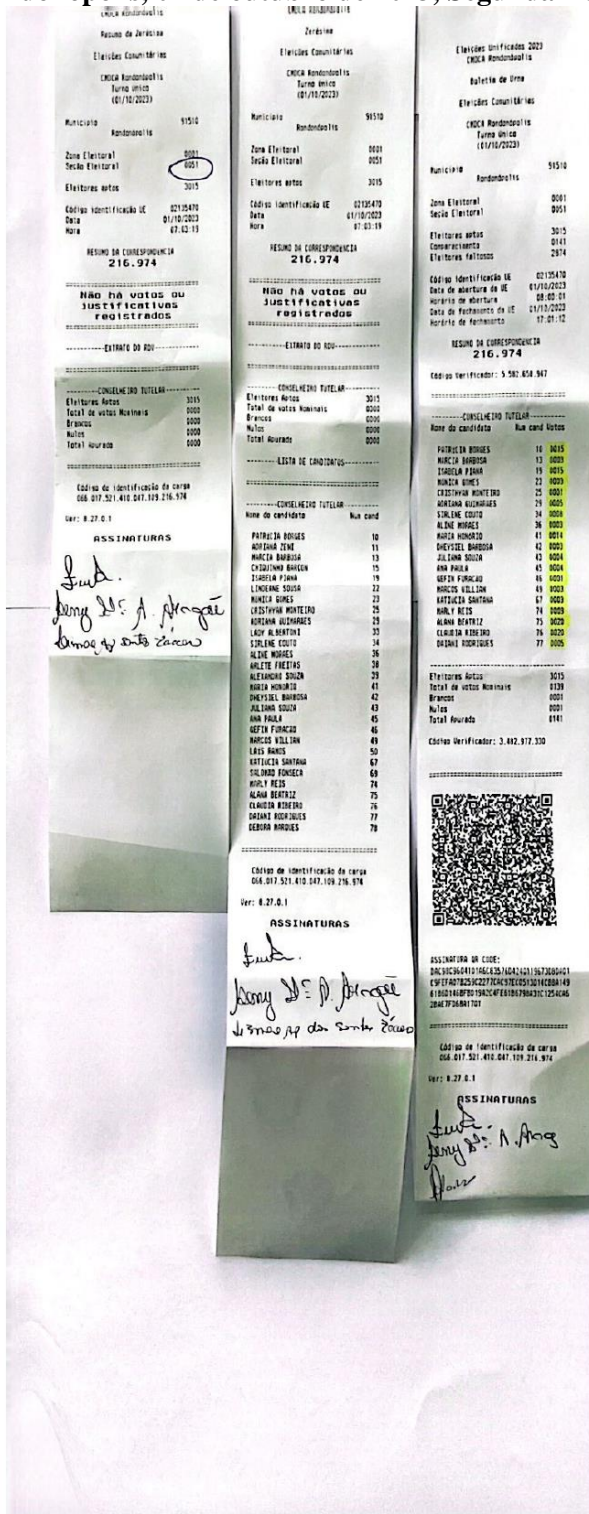 CMDCA Rondonópolis
Resumo da Zerésima
Eleições Comunitárias
CMDCA Rondonópolis
Turno único
(01/10/2023)
Município 91510
Rondonópolis
Zona Eleitoral 0001
Seção Eleitoral 0051
Eleitores aptos 3015
Código identificação UE 02135470
Data 01/10/2023
Hora 07:03:19
RESUMO DA CORRESPONDÊNCIA
216.974
Não há votos ou
justificativas
registrados
EXTRATO DO RDV
CONSELHEIRO TUTELAR
Eleitores Aptos 3015
Total de votos Nominais 0000
Brancos 0000
Nulos 0000
Total Apurado 0000
Código de identificação da carga
066.017.521.410.047.109.216.974
Ver: 8.27.0.1
ASSINATURAS
CMDCA Rondonópolis
Zerésima
Eleições Comunitárias
CMDCA Rondonópolis
Turno único
(01/10/2023)
Município 91510
Rondonópolis
Zona Eleitoral 0001
Seção Eleitoral 0051
Eleitores aptos 3015
Código identificação UE 02135470
Data 01/10/2023
Hora 07:03:19
RESUMO DA CORRESPONDÊNCIA
216.974
Não há votos ou
justificativas
registrados
EXTRATO DO RDV
CONSELHEIRO TUTELAR
Eleitores Aptos 3015
Total de votos Nominais 0000
Brancos 0000
Nulos 0000
Total Apurado 0000
LISTA DE CANDIDATOS
CONSELHEIRO TUTELAR
Nome do candidato Num cand
PATRICIA BORGES 10
ADRIANA ZENI 11
MARCIA BARBOSA 13
CHIQUINHO BARCON 15
ISABELA PIANA 19
LINDEANE SOUSA 22
MONICA GOMES 23
CRISTHYAN MONTEIRO 25
ADRIANA GUIMARAES 29
LADY ALBERTONI 33
SIRLENE COUTO 34
ALINE MORAES 36
ARLETE FREITAS 38
ALEXANDRE SOUZA 39
MARIA HONORIO 41
DHEYSIEL BARBOSA 42
JULIANA SOUZA 43
ANA PAULA 45
GEFIN FURACAO 46
MARCOS WILLIAN 49
LAIS RAMOS 50
KATIUCIA SANTANA 67
SALOMAO FONSECA 69
MARLY REIS 74
ALANA BEATRIZ 75
CLAUDIA RIBEIRO 76
DAIANI RODRIGUES 77
DEBORA MARQUES 78
Código de identificação da carga
066.017.521.410.047.109.216.974
Ver: 8.27.0.1
ASSINATURAS
Eleições Unificadas 2023
CMDCA Rondonópolis
Boletim de Urna
Eleições Comunitárias
CMDCA Rondonópolis
Turno único
(01/10/2023)
Município 91510
Rondonópolis
Zona Eleitoral 0001
Seção Eleitoral 0051
Eleitores aptos 3015
Comparecimento 0141
Eleitores faltosos 2874
Código identificação UE 02135470
Data de abertura da UE 01/10/2023
Horário de abertura 08:00:01
Data de fechamento da UE 01/10/2023
Horário de fechamento 17:01:12
RESUMO DA CORRESPONDÊNCIA
216.974
Código Verificador: 5.502.658.947
CONSELHEIRO TUTELAR
Nome do candidato Num cand Votos
PATRICIA BORGES 10 0015
MARCIA BARBOSA 13 0003
ISABELA PIANA 19 0015
MONICA GOMES 23 0003
CRISTHYAN MONTEIRO 25 0001
ADRIANA GUIMARAES 29 0005
SIRLENE COUTO 34 0008
ALINE MORAES 36 0003
MARIA HONORIO 41 0014
DHEYSIEL BARBOSA 42 0003
JULIANA SOUZA 43 0004
ANA PAULA 45 0004
GEFIN FURACAO 46 0001
MARCOS WILLIAN 49 0003
KATIUCIA SANTANA 67 0003
MARLY REIS 74 0009
ALANA BEATRIZ 75 0020
CLAUDIA RIBEIRO 76 0020
DAIANI RODRIGUES 77 0005
Eleitores Aptos 3015
Total de votos Nominais 0139
Brancos 0001
Nulos 0001
Total Apurado 0141
Código Verificador: 3.402.977.330
ASSINATURA QR CODE:
Código de identificação da carga
066.017.521.410.047.109.216.974
Ver: 8.27.0.1
ASSINATURAS